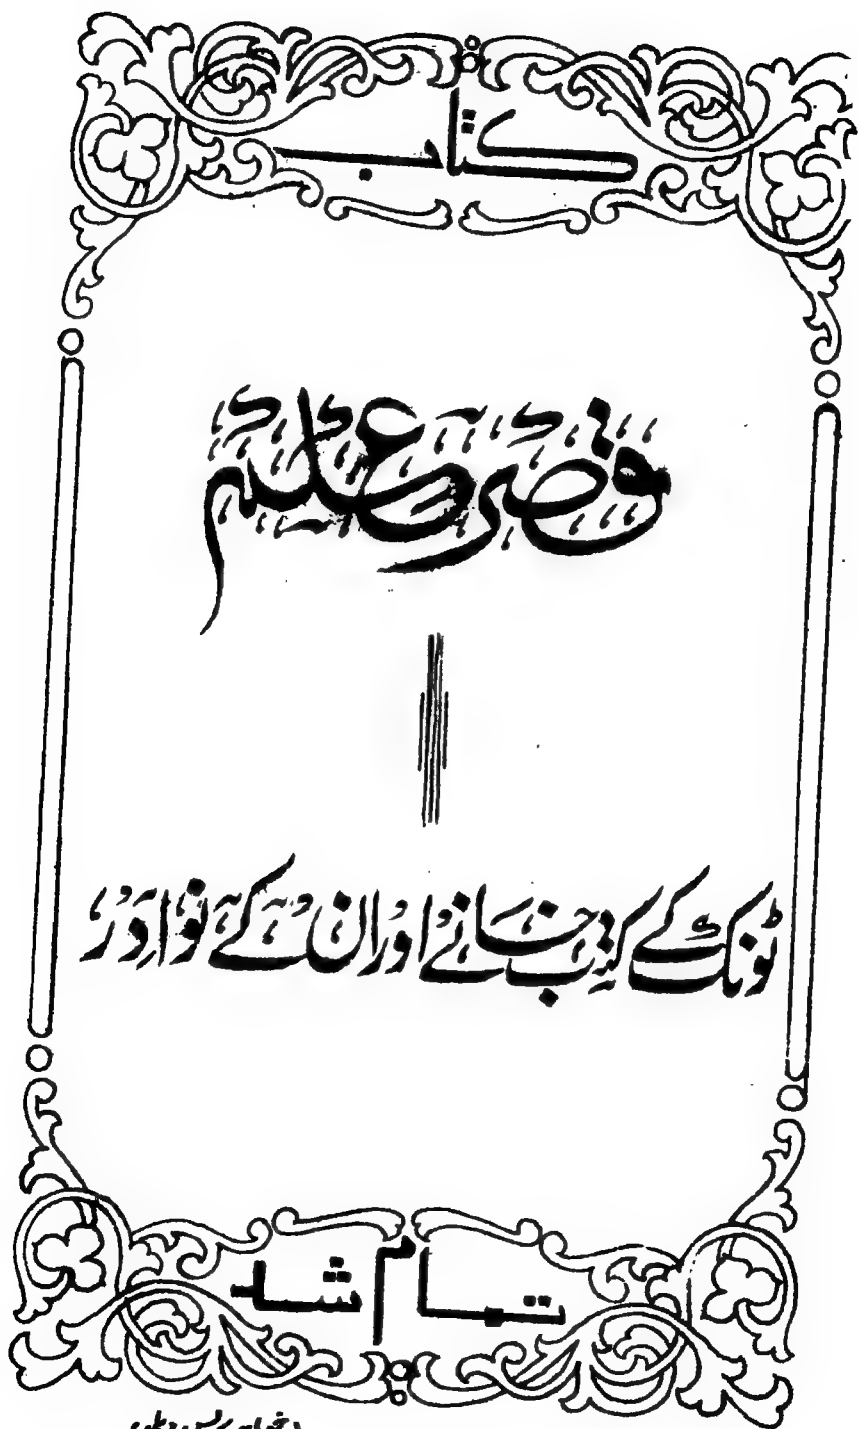 کتاب
قصر علم
ٹونک کے کتب خانے اور ان کے نوادر
تمام شد